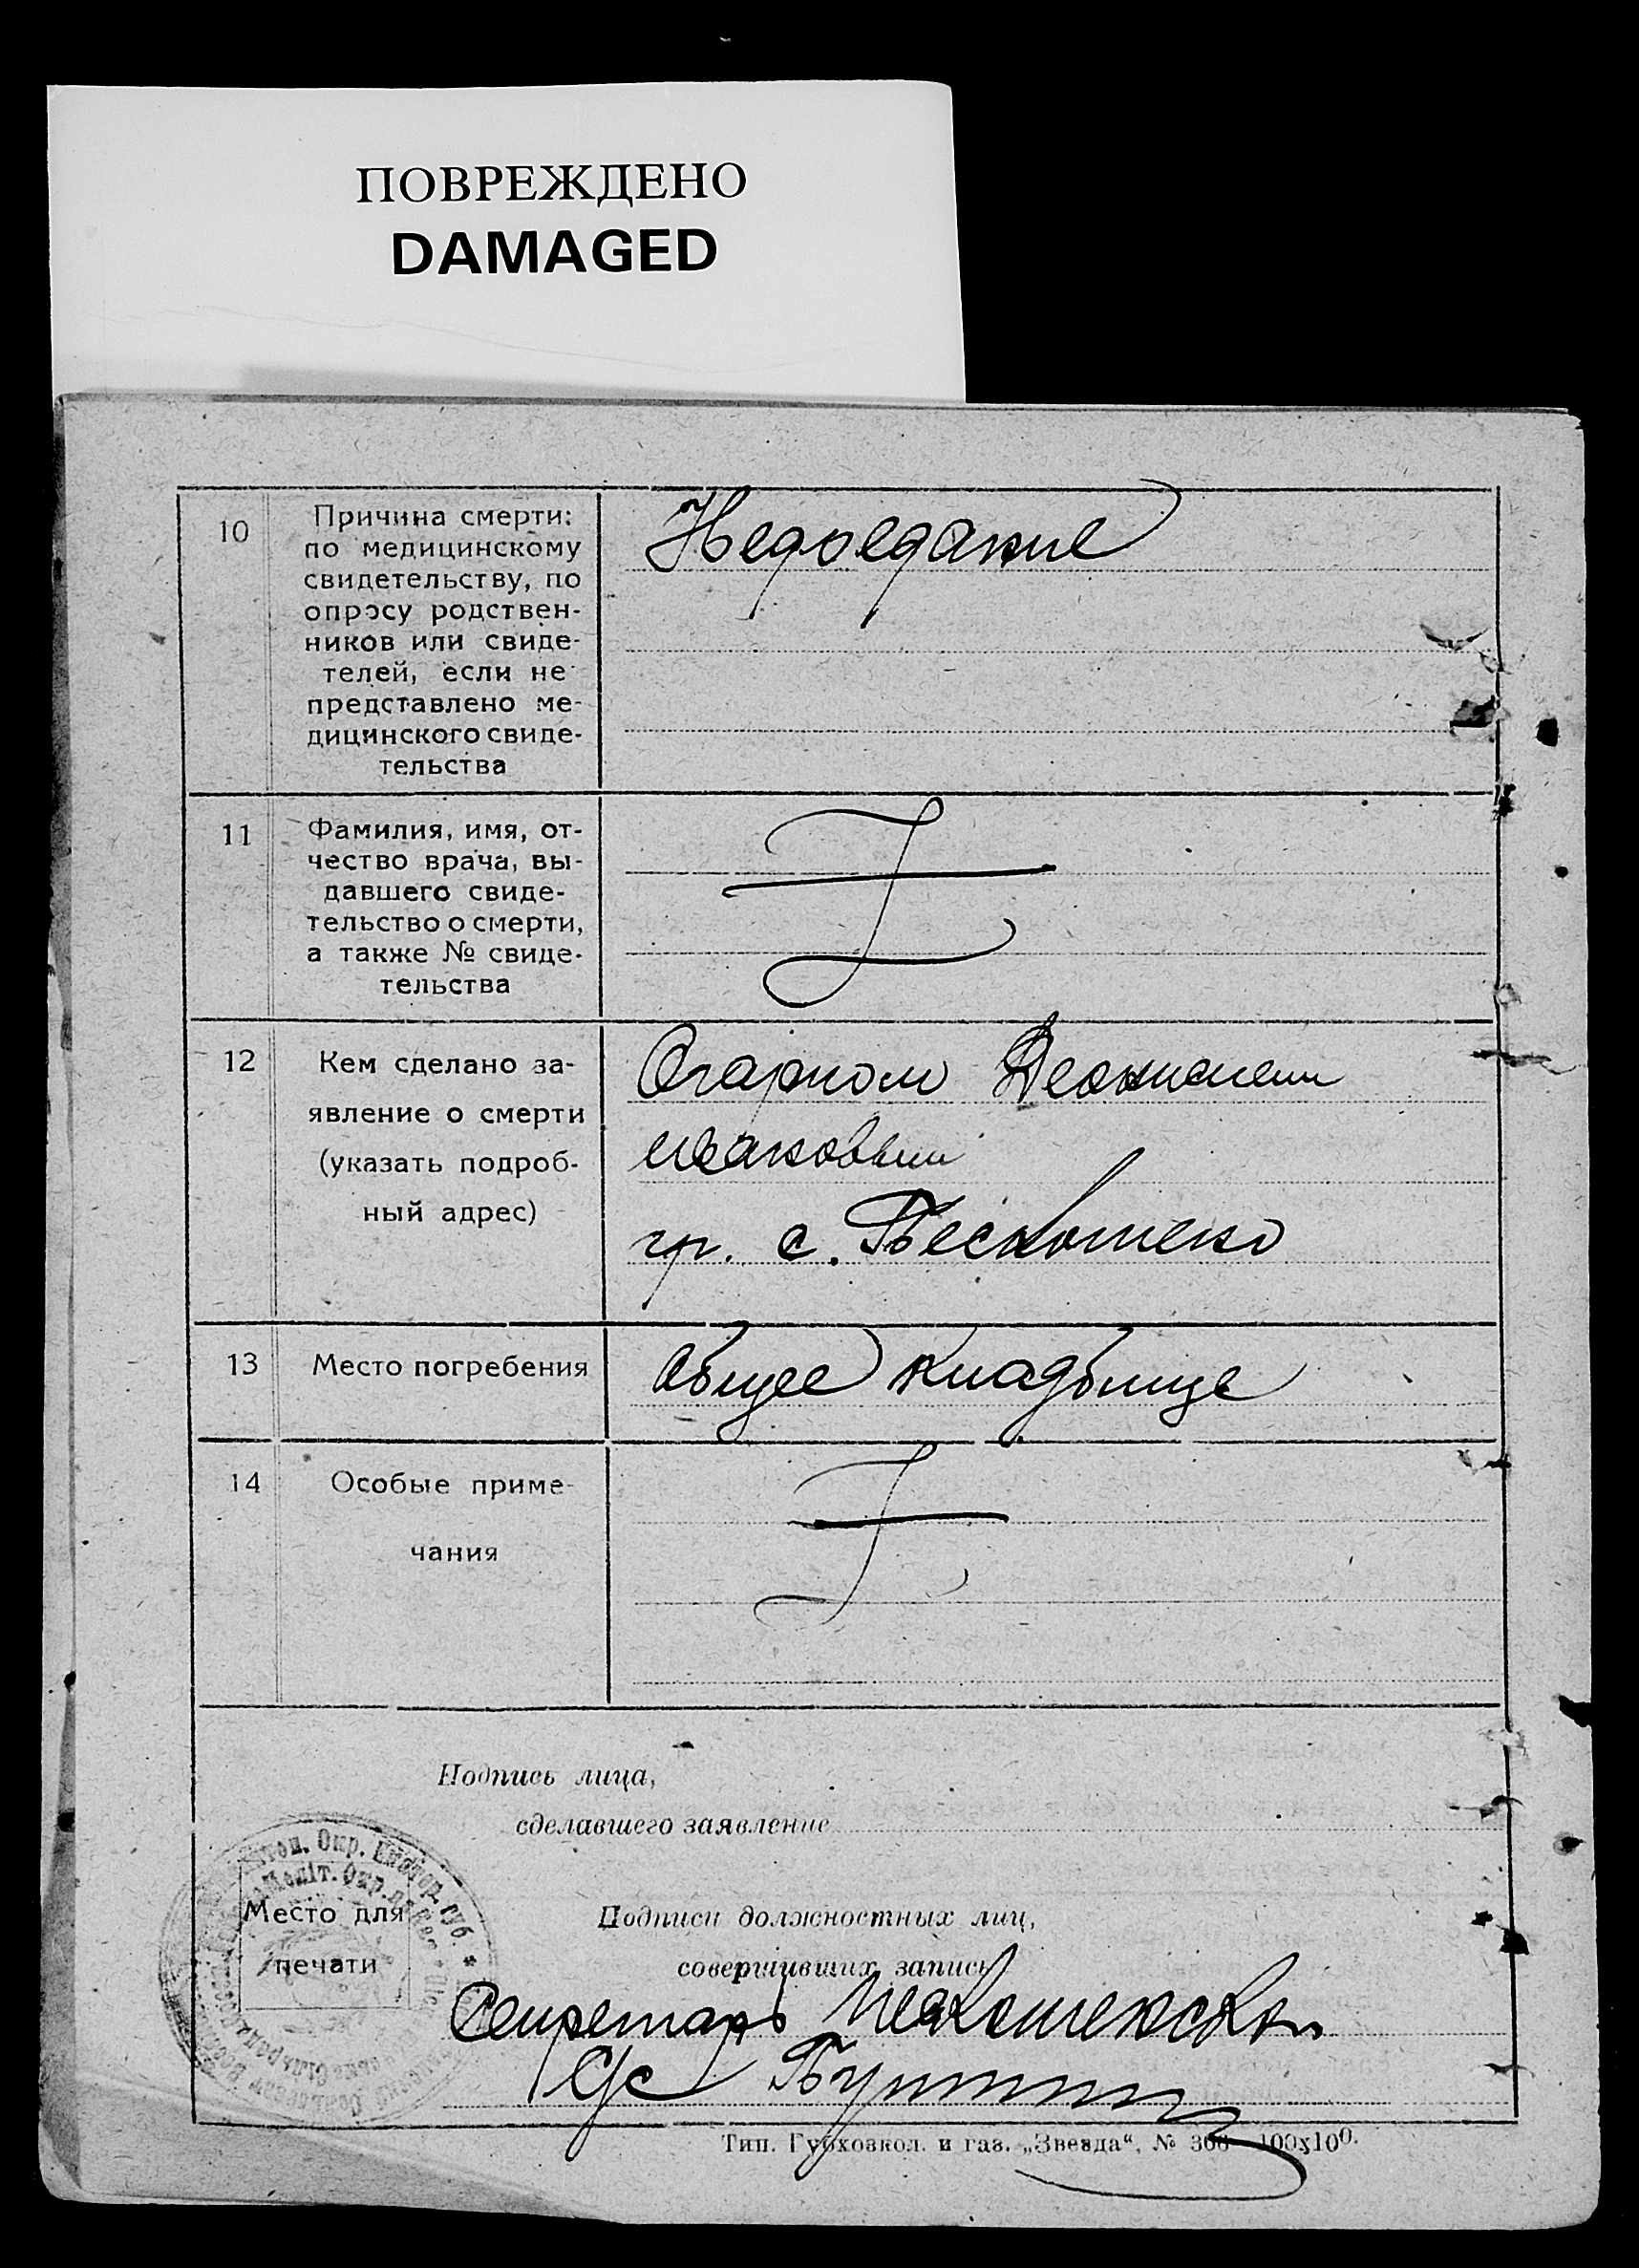 ПОВРЕЖДЕНО
DAMAGED
10
Причина смерти:
по медицинскому
свидетельству, по
опросу родствен-
ников или свиде-
телей, если не
представлено ме-
дицинского свиде-
тельства
Недоедание
11
Фамилия, имя, от-
чество врача, вы-
давшего свиде-
тельство о смерти,
а также № свиде-
тельства
12
Кем сделано за-
явление о смерти
(указать подроб-
ный адрес)
гр. с.
13
Место погребения
Общее кладбище
14
Особые приме-
чания
Подпись лица,
сделавшего заявление
Окр.
Место для
печати
Подписи должностных лиц,
совершивших запись
Секретарь
С/с
Тип. Губхозкол. и газ. „Звезда“, № 300 100х100.